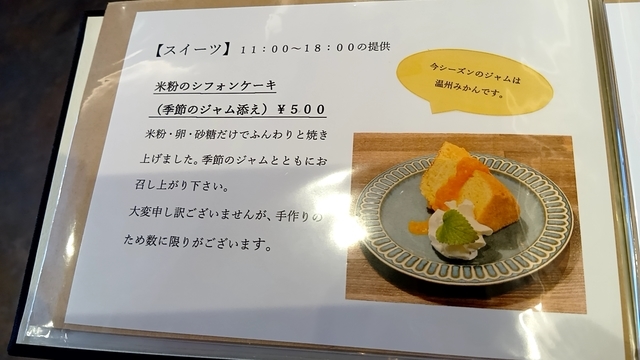 【スイーツ】11：00～18：00の提供
今シーズンのジャムは
温州みかんです。
米粉のシフォンケーキ
（季節のジャム添え）￥５００
米粉・卵・砂糖だけでふんわりと焼き
上げました。季節のジャムとともにお
召し上がり下さい。
大変申し訳ございませんが、手作りの
ため数に限りがございます。